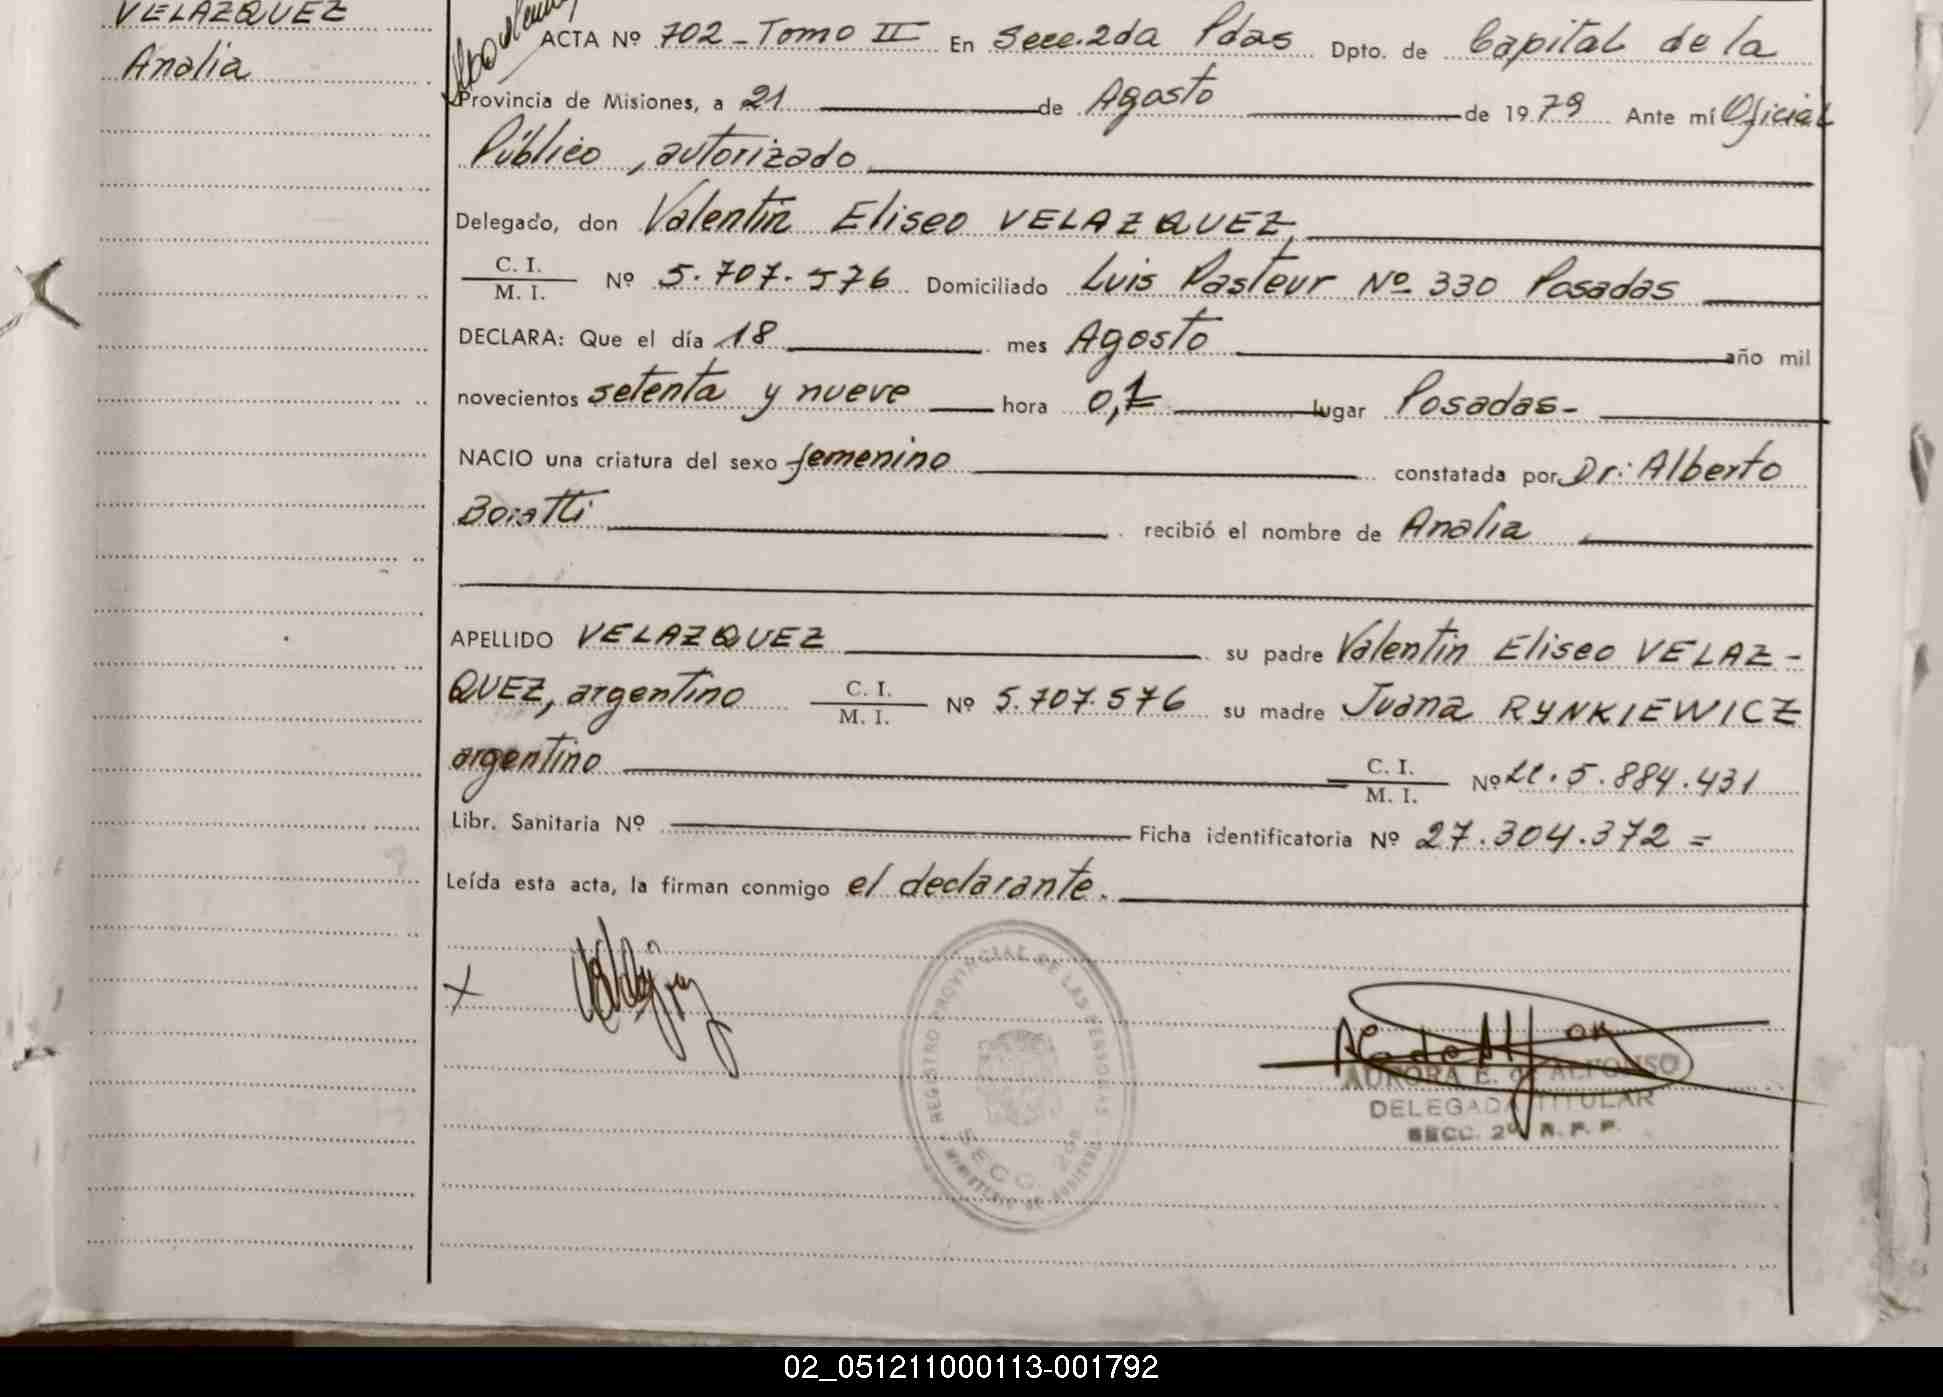 VELAZQUEZ
Analia
ACTA Nº 702 - Tomo II En Secc. 2da Pdas Dpto. de Capital de la
Provincia de Misiones, a 21 de Agosto de 1979 Ante mí Oficial
Público, autorizado
Delegado, don Valentin Eliseo VELAZQUEZ,
C. I.
M. I.
Nº 5.707.576 Domiciliado Luis Pasteur Nº 330 Posadas
DECLARA: Que el día 18 mes Agosto año mil
novecientos setenta y nueve hora 0,1 lugar Posadas-
NACIO una criatura del sexo femenino constatada por Dr: Alberto
recibió el nombre de Analia
APELLIDO VELAZQUEZ su padre Valentin Eliseo VELAZ-
QUEZ, argentino C. I. M. I. Nº 5.707.576 su madre Juana RYNKIEWICZ
argentino C. I. M. I. Nº LC. 5.884.431
Libr. Sanitaria Nº Ficha identificatoria Nº 27.304.372 =
Leída esta acta, la firman conmigo el declarante.
REGISTRO PROVINCIAL DE LAS PERSONAS
SECC. 2da
MINISTERIO DE GOBIERNO
AURORA E. de ALFONSO
DELEGADA TITULAR
SECC. 2ª R. P. P.
02_051211000113-001792